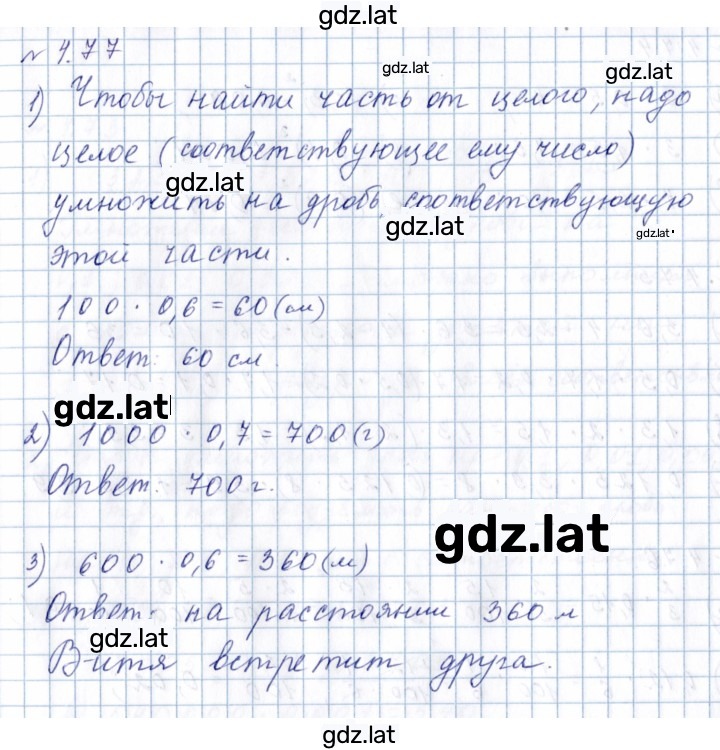 gdz.lat
№ 4.77
gdz.lat
gdz.lat
1) Чтобы найти часть от целого, надо
целое (соответствующее ему число)
gdz.lat
умножить на дробь, соответствующую
gdz.lat
gdz.lat
этой части.
100 · 0,6 = 60 (см)
Ответ: 60 см.
gdz.lat
2) 1000 · 0,7 = 700 (г)
Ответ: 700 г.
gdz.lat
3) 600 · 0,6 = 360 (м)
Ответ: на расстоянии 360 м
gdz.lat
Витя встретит друга.
gdz.lat